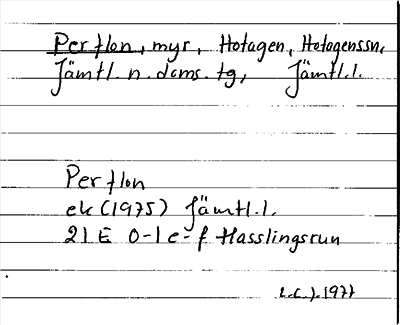 Perflon, myr, Hotagen, Hotagenssn,
Jämtl. n. doms. tg, Jämtl.l.
Perflon
ek (1975) Jämtl.l.
21 E 0-1 e-f Hasslingsrun
1977